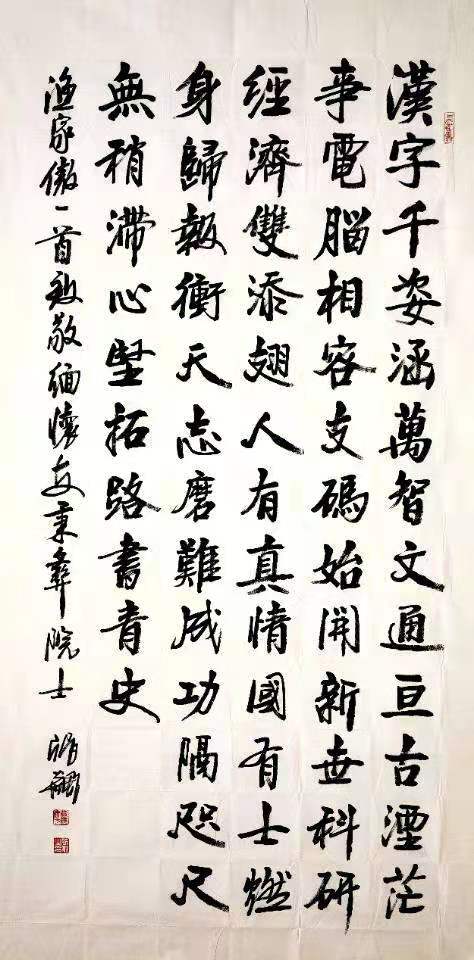 漢字千姿涵萬智文通亘古湮茫
事電腦相容支碼始開新世科研
經濟雙添翅人有真情國有士燃
身歸報衝天志磨難成功隔咫尺
無稍滯心堅拓路書青史
漁家傲一首致敬緬懷支秉彝院士